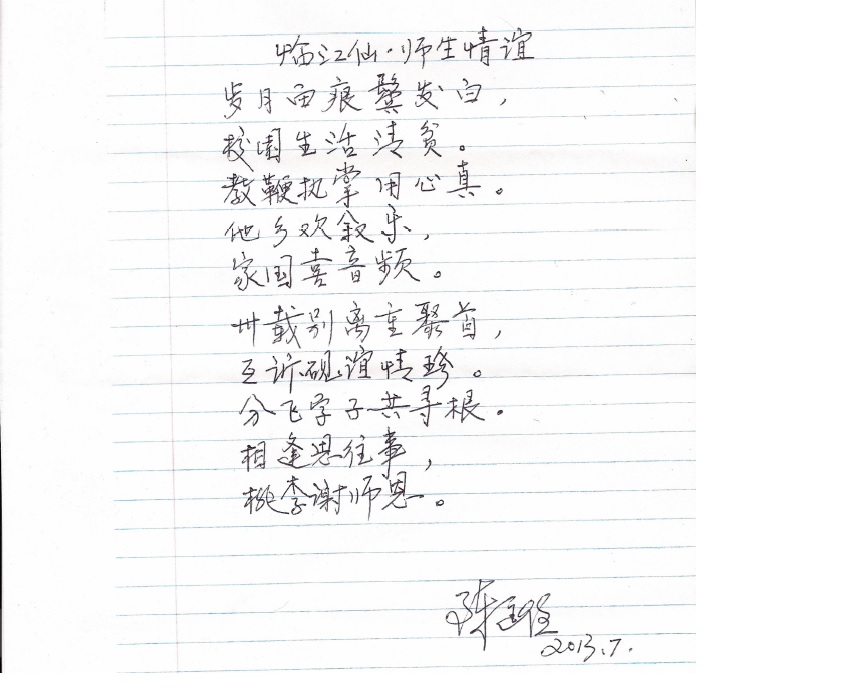 临江仙·师生情谊
岁月雨痕鬓发白，
校園生活清贫。
教鞭执掌用心真。
他乡欢叙乐，
家国喜音频。
卅载别离重聚首，
互诉砚谊情珍。
分飞学子共寻根。
相逢思往事，
桃李谢师恩。
陈
2013.7.